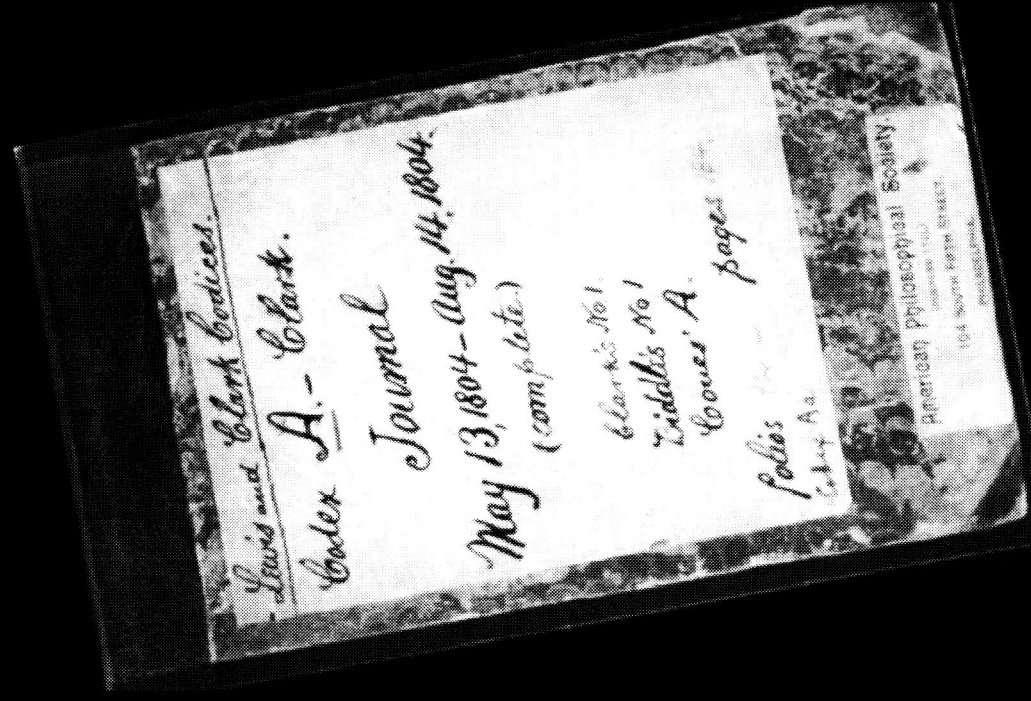 - Lewis and Clark Codices.
Codex A. - Clark.
Journal
May 13, 1804 - Aug. 14, 1804.
(complete)
Clark's No 1.
Biddle's No 1
Coues' A.
Folios pages
Codex Aa
American Philosophical Society.
104 SOUTH FIFTH STREET,
PHILADELPHIA.